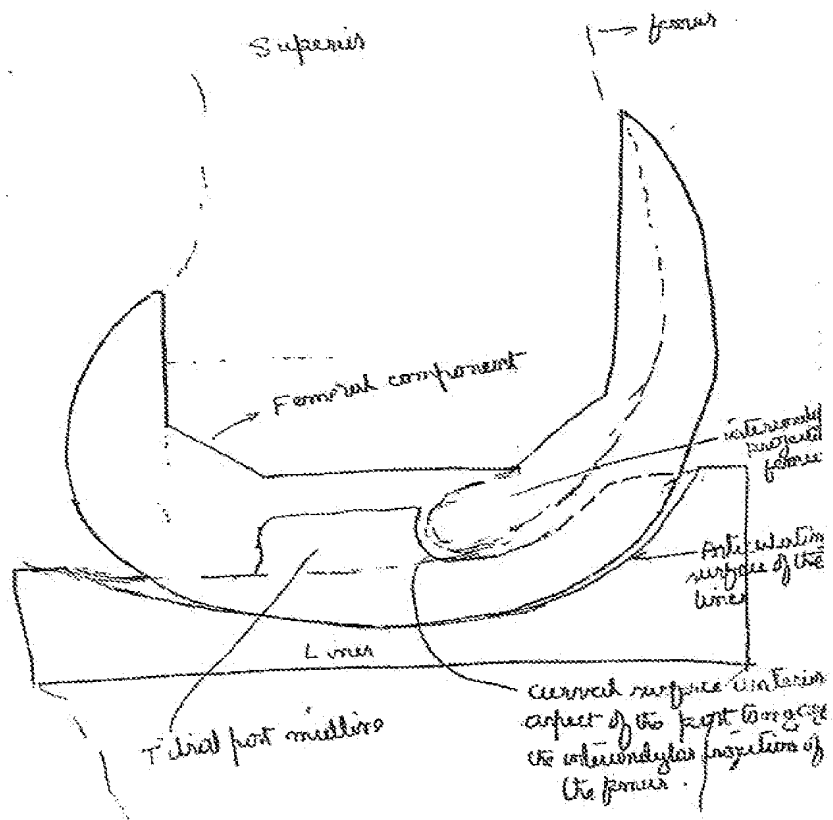 Superior
femur
Femoral component
femur
Articulating
surface of the
liner
Liner
Tibial post midline
curved surface anterior
aspect of the post engage
the intercondylar projection of
the femur.